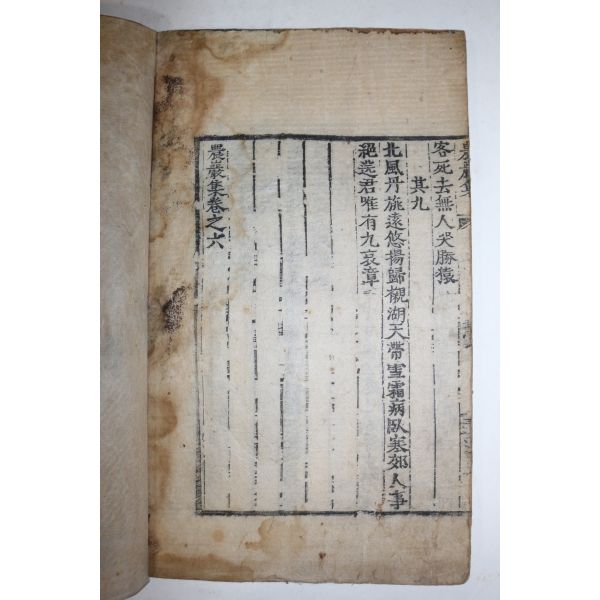 農巖集
客死去無人哭勝猿
其九
北風丹旐遠悠揚歸櫬湖天帶雪霜病臥寒郊人事
絕送君唯有九哀章
農巖集卷之六